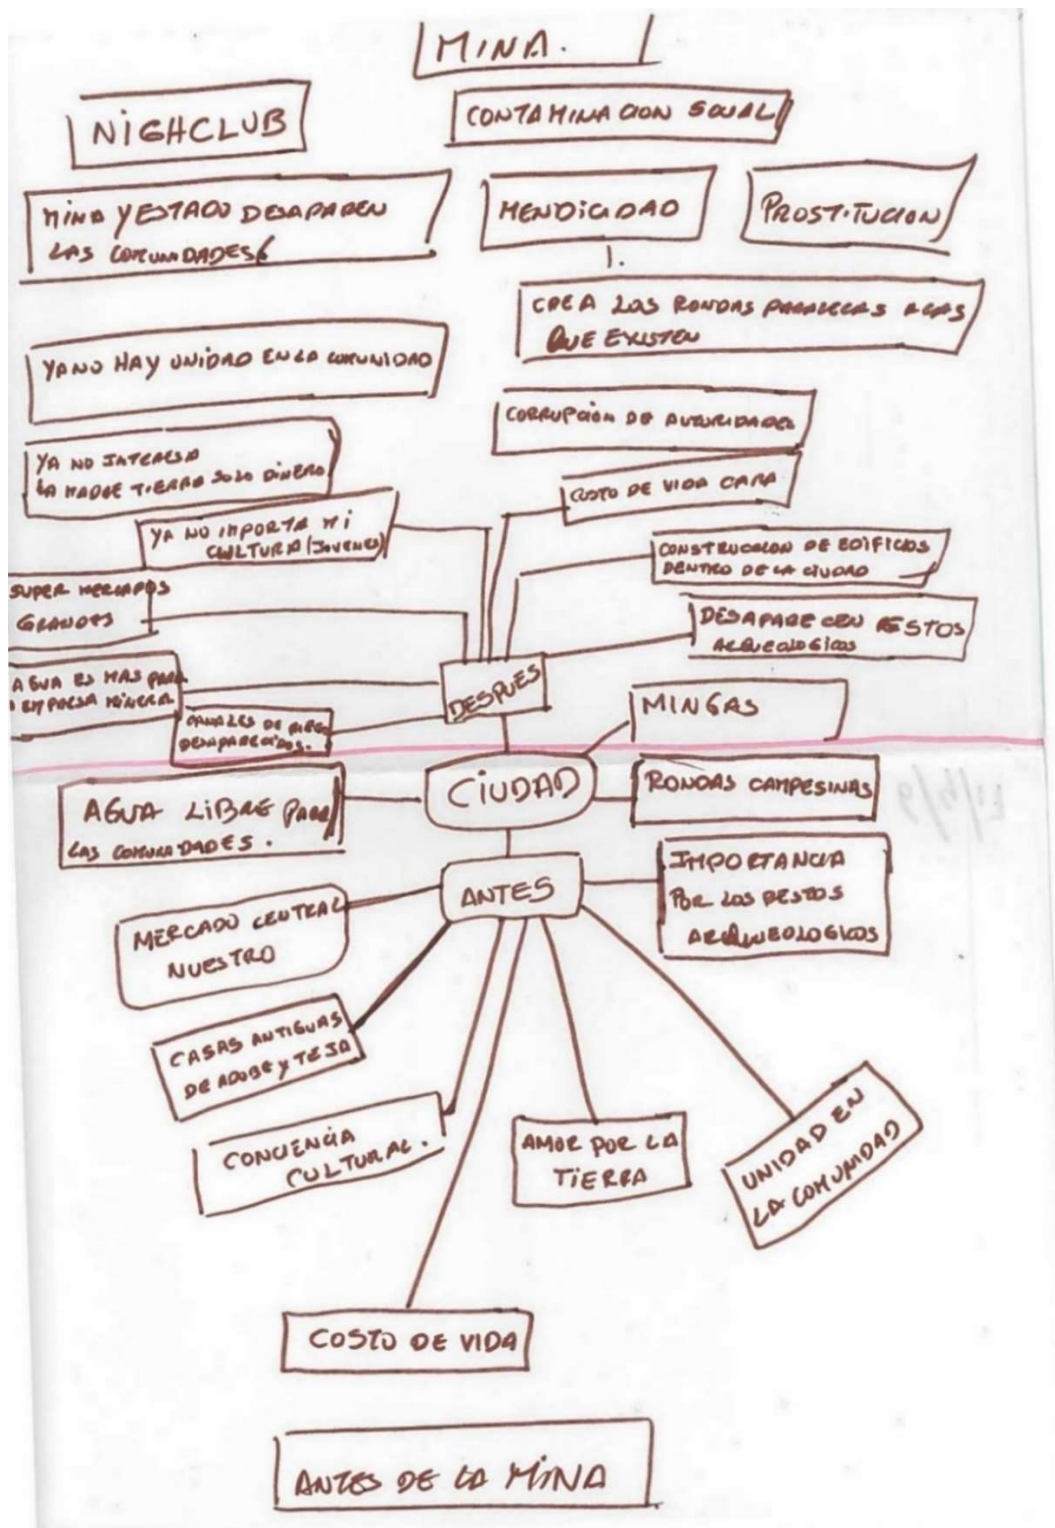 MINA.
NIGHCLUB
CONTAMINACION SOCIAL
MINA Y ESTADO DESAPAREN
LAS COMUNIDADES
MENDICIDAD
PROSTITUCION
1.
CREA LOS RONDAS PARALELAS A LAS
QUE EXISTEN
YA NO HAY UNIDAD EN LA COMUNIDAD
CORRUPCIÓN DE AUTORIDADES
YA NO INTERESA
LA MADRE TIERRA SOLO DINERO
COSTO DE VIDA CARA
YA NO IMPORTA MI
CULTURA (JOVENES)
CONSTRUCCION DE EDIFICIOS
DENTRO DE LA CIUDAD
SUPER MERCADOS
GRANDES
DESAPARECEN RESTOS
ARQUEOLOGICOS
AGUA ES MAS PARA
EMPRESA MINERA
DESPUES
MINGAS
CANALES DE RIEGO
DESAPARECIDOS.
CIUDAD
RONDAS CAMPESINAS
AGUA LIBRE PARA
LAS COMUNIDADES.
ANTES
IMPORTANCIA
POR LOS RESTOS
ARQUEOLOGICOS
MERCADO CENTRAL
NUESTRO
CASAS ANTIGUAS
DE ADOBE Y TEJA
CONCIENCIA
CULTURAL.
AMOR POR LA
TIERRA
UNIDAD EN
LA COMUNIDAD
COSTO DE VIDA
ANTES DE LA MINA